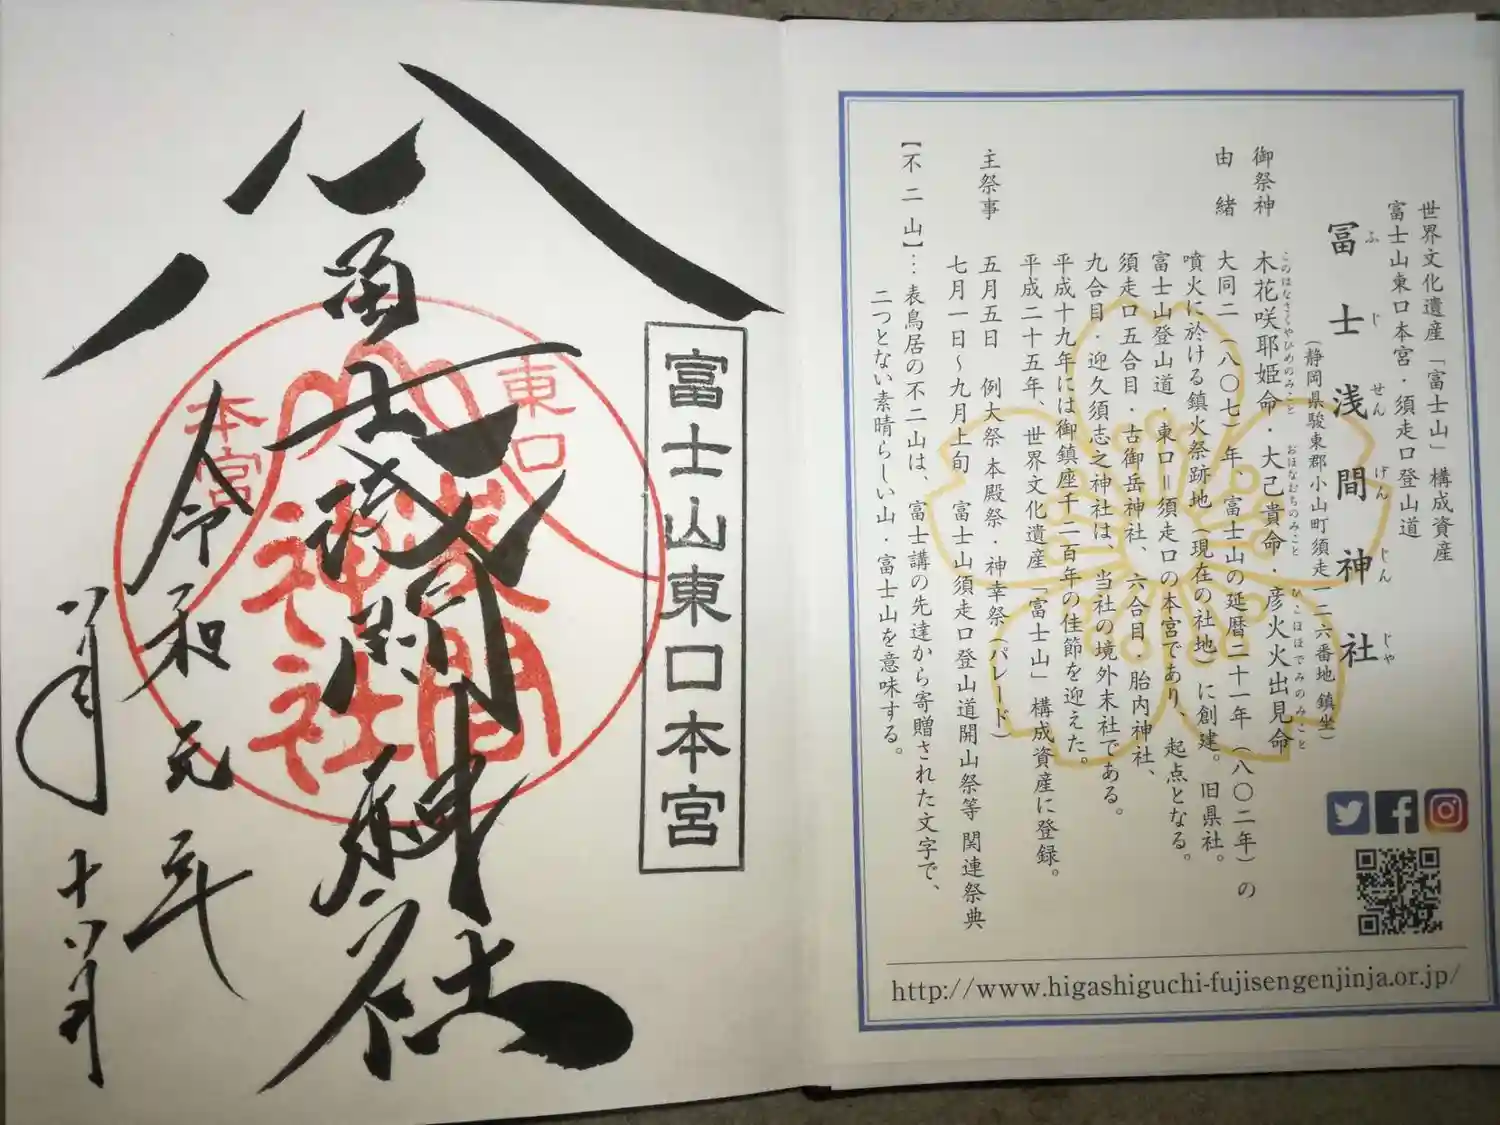 世界文化遺産「富士山」構成資産
富士山東口本宮・須走口登山道
冨士浅間神社
ふじせんげんじんじゃ
(静岡県駿東郡小山町須走一二六番地 鎮坐)
御祭神
木花咲耶姫命・大己貴命・彦火火出見命
このはなさくやひめのみこと
おほなむちのみこと
ひこほほでみのみこと
由緒
大同二(八〇七)年、富士山の延暦二十一年(八〇二年)の
噴火に於ける鎮火祭跡地(現在の社地)に創建。旧県社。
富士山登山道・東口=須走口の本宮であり、起点となる。
須走口五合目・古御岳神社、六合目・胎内神社、
九合目・迎久須志之神社は、当社の境外末社である。
平成十九年には御鎮座千二百年の佳節を迎えた。
平成二十五年、世界文化遺産「富士山」構成資産に登録。
主祭事
五月五日 例大祭 本殿祭・神幸祭(パレード)
七月一日～九月上旬 富士山須走口登山道開山祭等 関連祭典
【不二山】…表鳥居の不二山は、富士講の先達から寄贈された文字で、
二つとない素晴らしい山・富士山を意味する。
http://www.higashiguchi-fujisengenjinja.or.jp/
富士山東口本宮
冨士浅間神社
東口
本宮
浅間
神社
令和元年
八月十八日